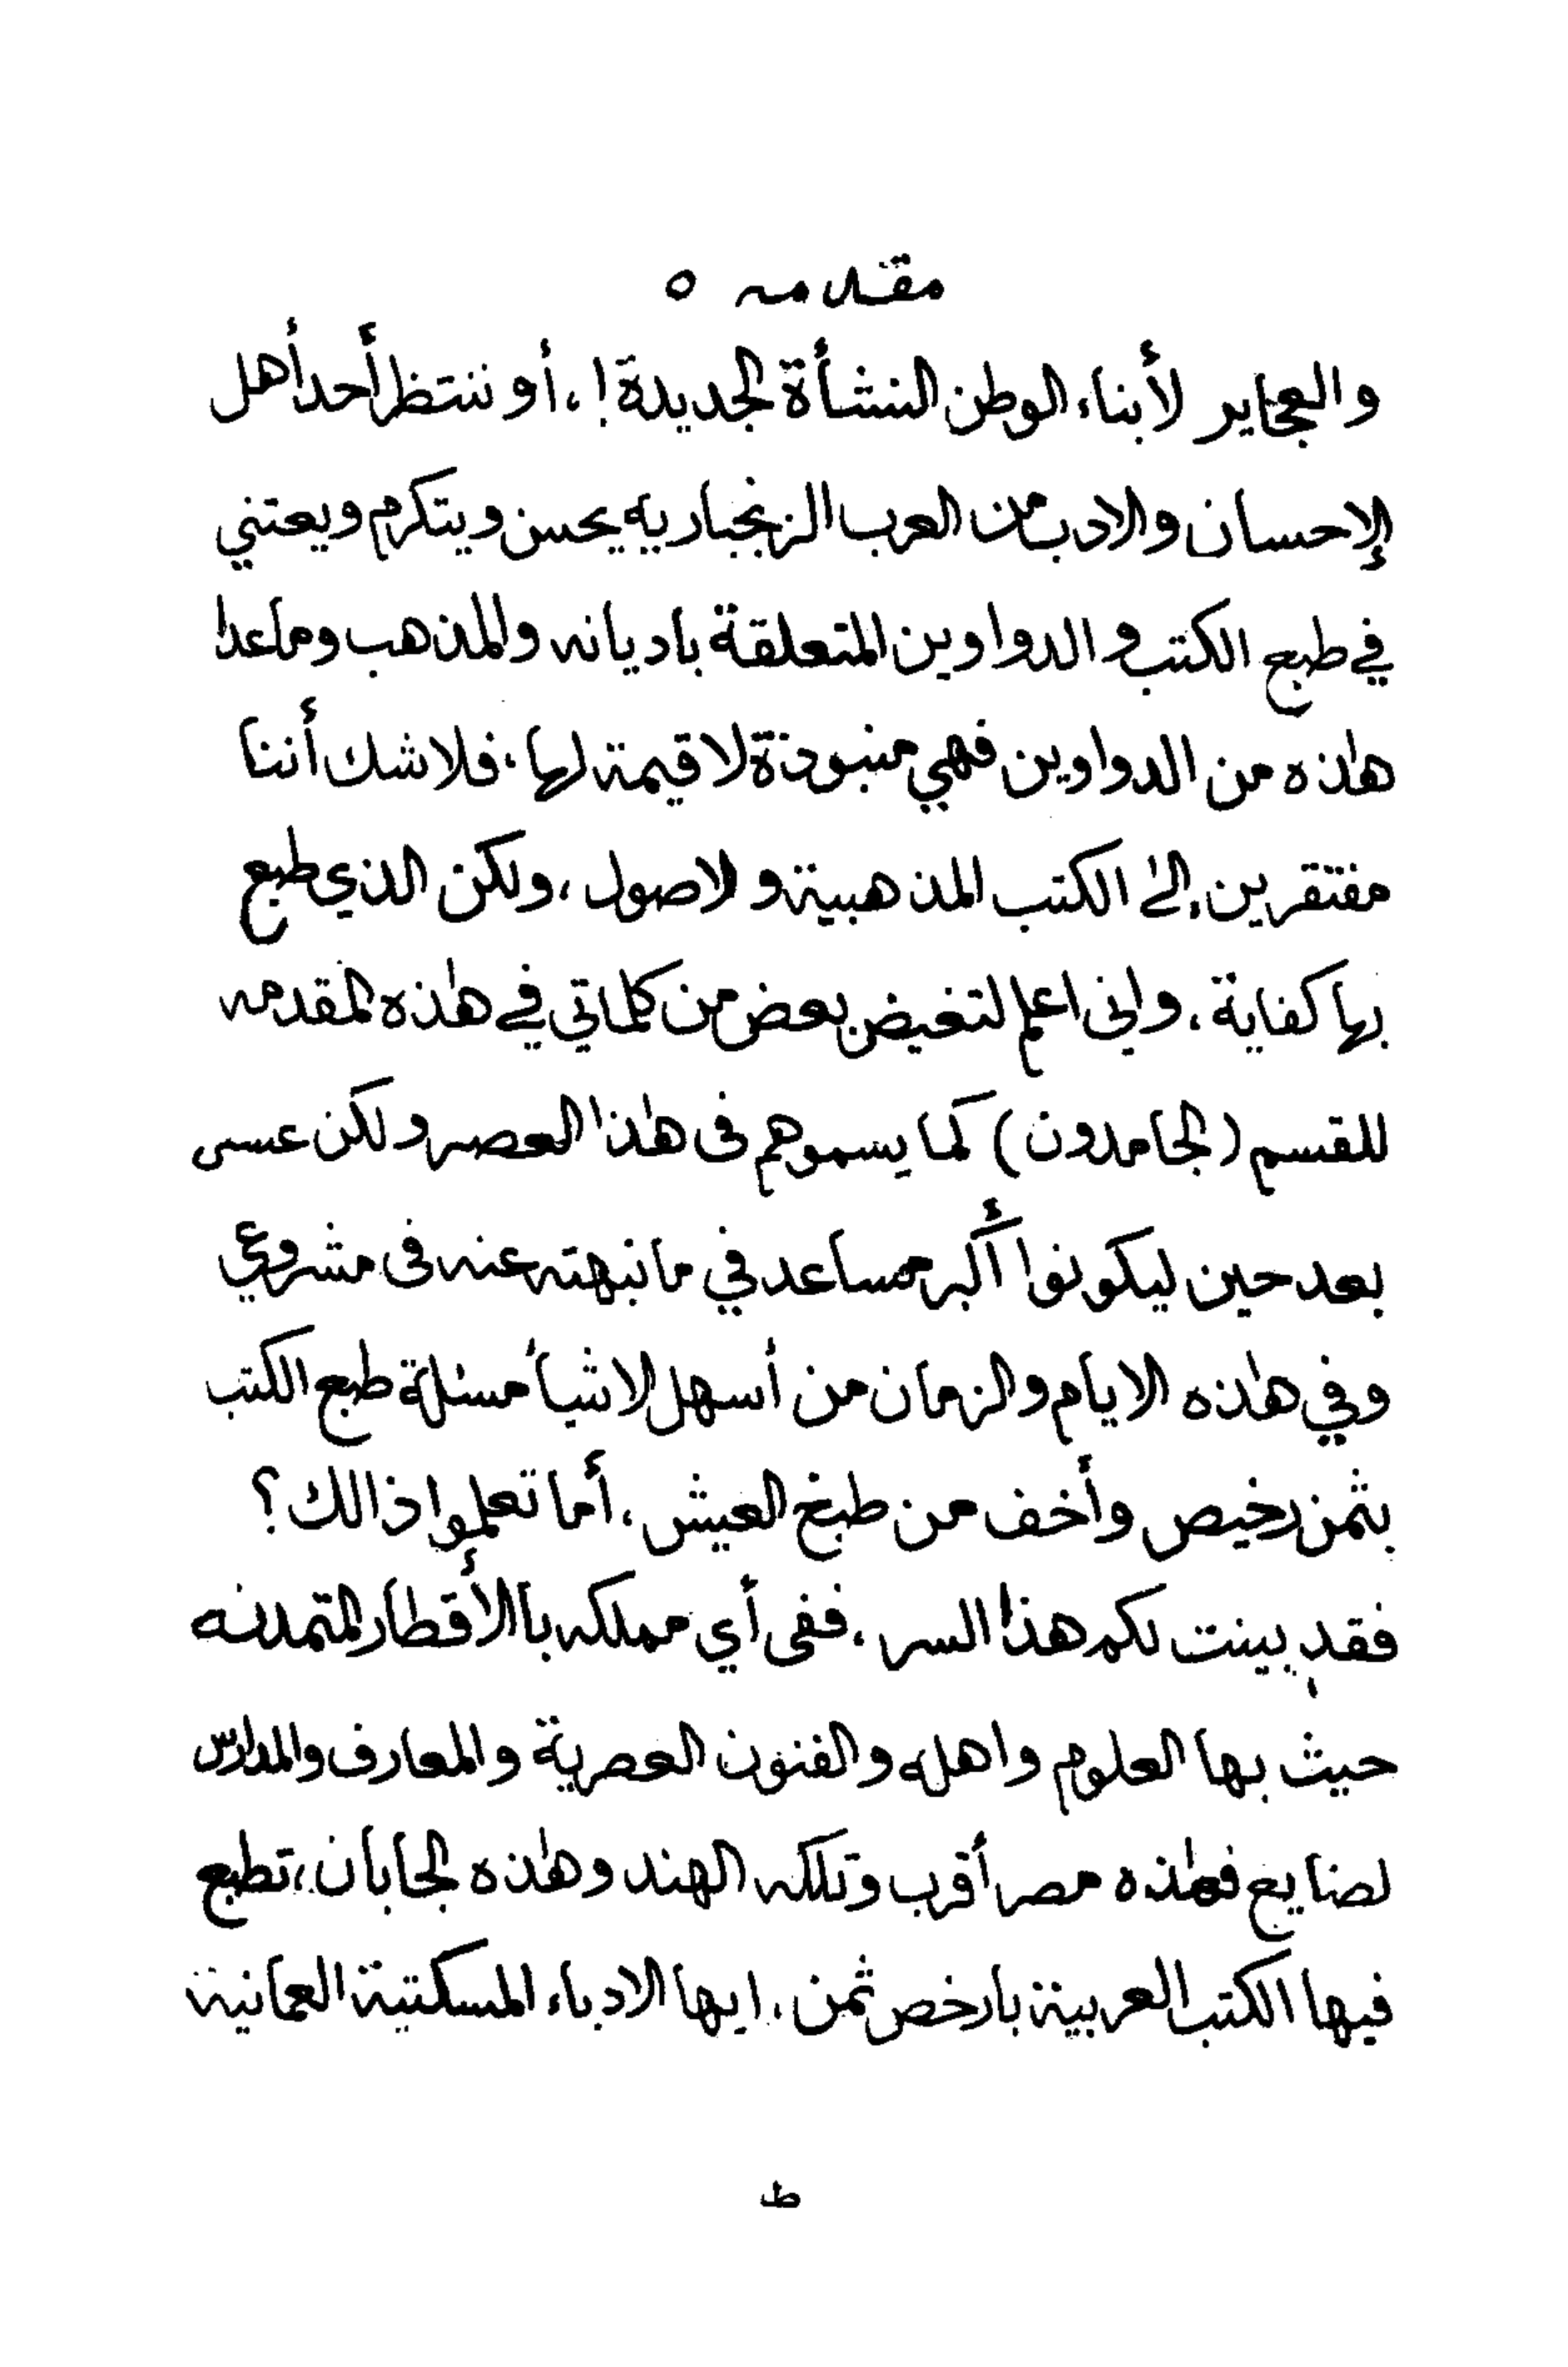 مقدمه ٥
والعجاير لأبناء الوطن النشأة الجديدة!، أو ننتظر أحد أهل
الإحسان والادب من العرب الزنجباريه يحسن ويتكرم ويعتني
في طبع الكتب والدواوين المتعلقة باديانه والمذهب وماعدا
هٰذه من الدواوين فهي منبوذة لا قيمة لها، فلاشك أننا
مفتقرين إلىٰ الكتب المذهبية والاصول، ولكن الذي طبع
بها كفاية، وانى اعلم لتغيض بعض من كلماتي في هٰذه المقدمه
للقسم (الجامدون) كما يسموهم فى هٰذا العصر ولكن عسى
بعد حين ليكونوا أكبر مساعد في ما نبهته عنه فى مشروعي
وفي هٰذه الايام والزمان من أسهل الاشيأ مسئلة طبع الكتب
بثمن رخيص وأخف من طبخ العيش، أما تعلموا ذالك؟
فقد بينت لكم هذا السر، ففى أي مملكه باالأقطار المتمدنه
حيث بها العلوم واهله والفنون العصرية والمعارف والمدارس
لصنايع فهٰذه مصر أقرب وتلكه الهند وهٰذه الجابان، تطبع
فيها الكتب العربية بارخص ثمن، ايها الادباء المسكتية العمانية
ط